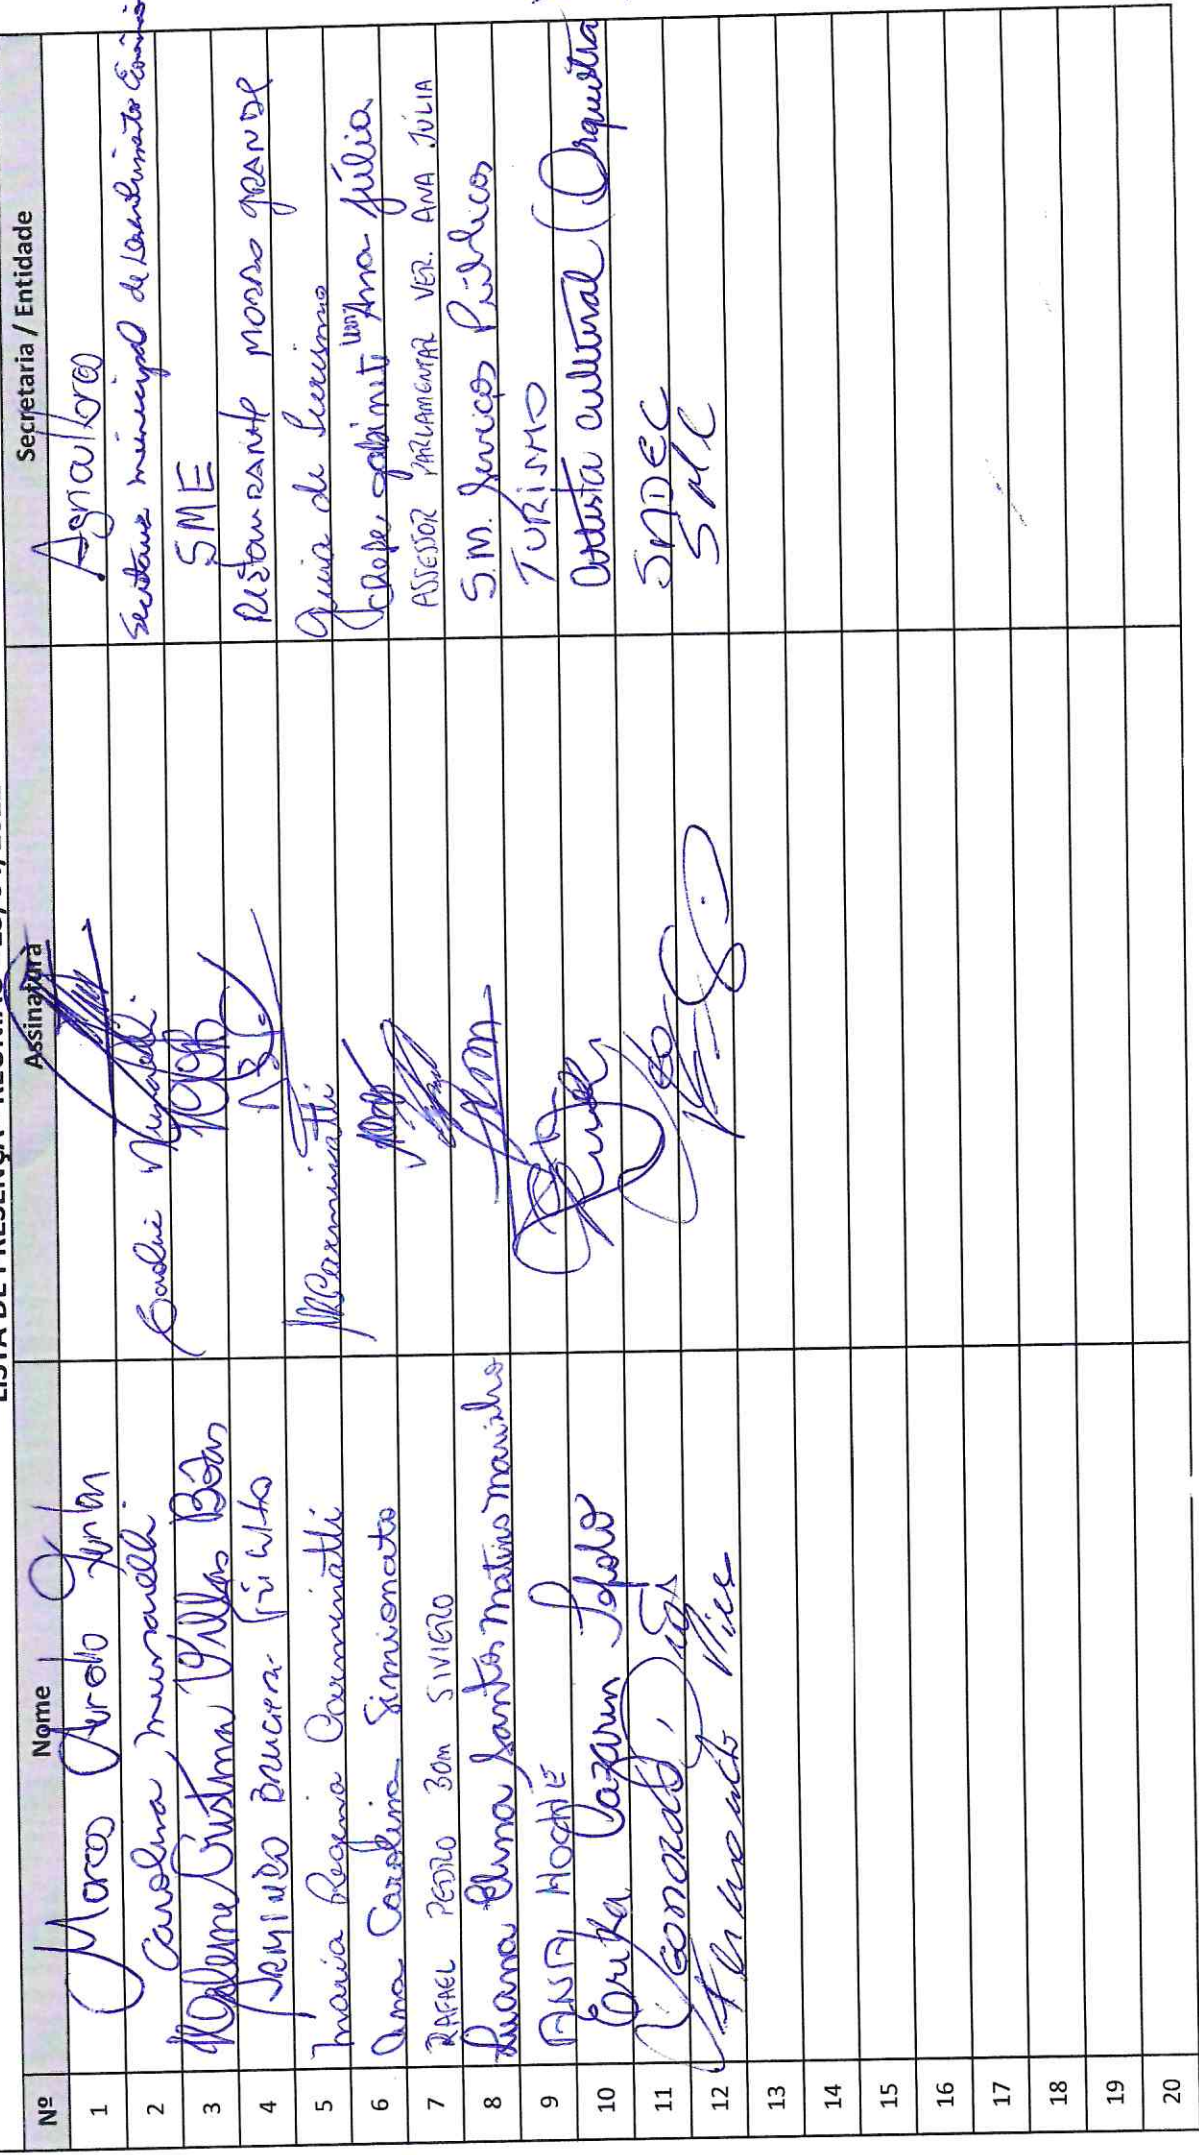 LISTA DE PRESENÇA
Nº Nome Assinatura Secretaria / Entidade
1 Marcos Aurelio Agricultura
2 Carolina Mussarelli Secretaria municipal de Desenvolvimento Econômico
3 Marlene Cristina Villas Bôas SME
4 Restaurante Morro Grande
5 Maria Regina Carminatti MRCarminatti Guia de Turismo
6 Ana Carolina Simionato chefe gabinete Ver. Ana Júlia
7 RAFAEL PEDRO BOM SIVIERO ASSESSOR PARLAMENTAR VER. ANA JÚLIA
8 Luana Elena Santos Matins Marinho S.M. Serviços Públicos
9 ANAI TURISMO
10 Erika Cazarin artista cultural (Orquestra
11 Leonardo Dias SMDEC
12 Fernando SMC
13
14
15
16
17
18
19
20